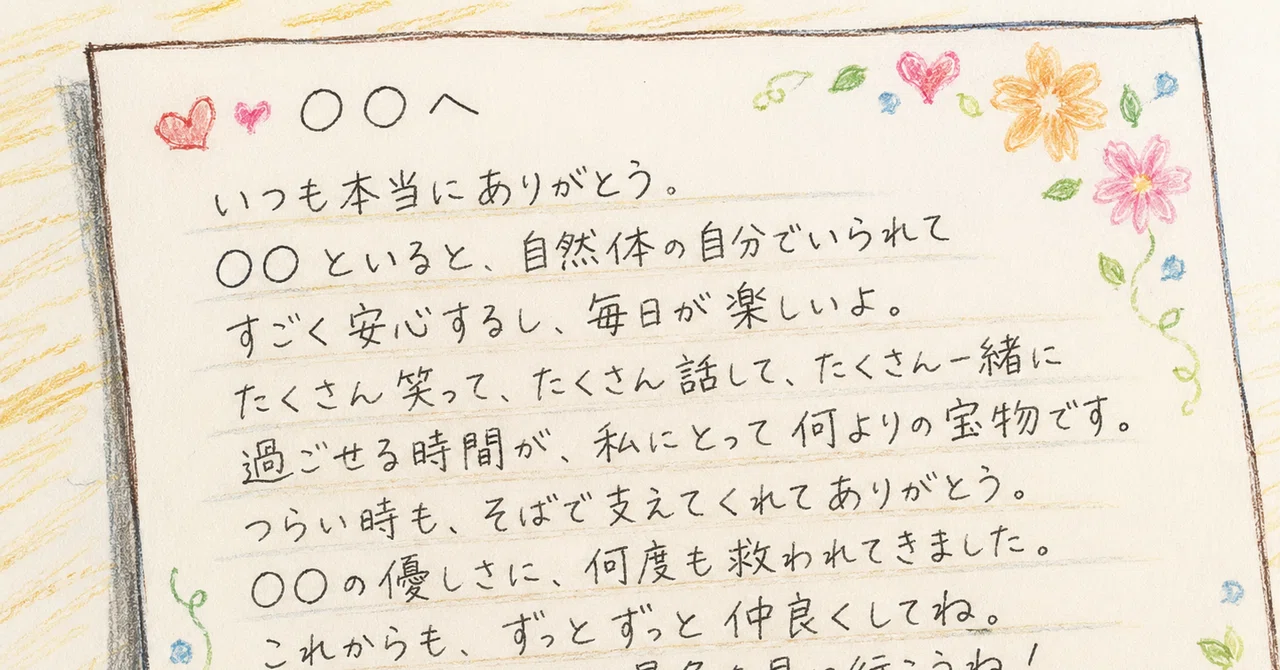 ○○へ
いつも本当にありがとう。
○○といると、自然体の自分でいられて
すごく安心するし、毎日が楽しいよ。
たくさん笑って、たくさん話して、たくさん一緒に
過ごせる時間が、私にとって何よりの宝物です。
つらい時も、そばで支えてくれてありがとう。
○○の優しさに、何度も救われてきました。
これからも、ずっとずっと仲良くしてね。
行こうね！